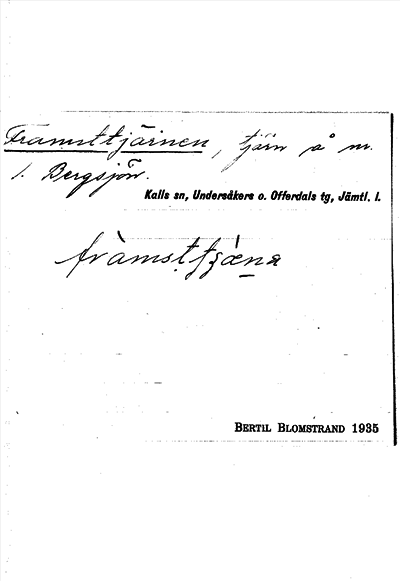 Framsttjärnen, tjärn å nr.
1. Bergsjön.
Kalls sn, Undersåkers o. Offerdals tg, Jämtl. l.
fràmsttjæ̀na
BERTIL BLOMSTRAND 1935